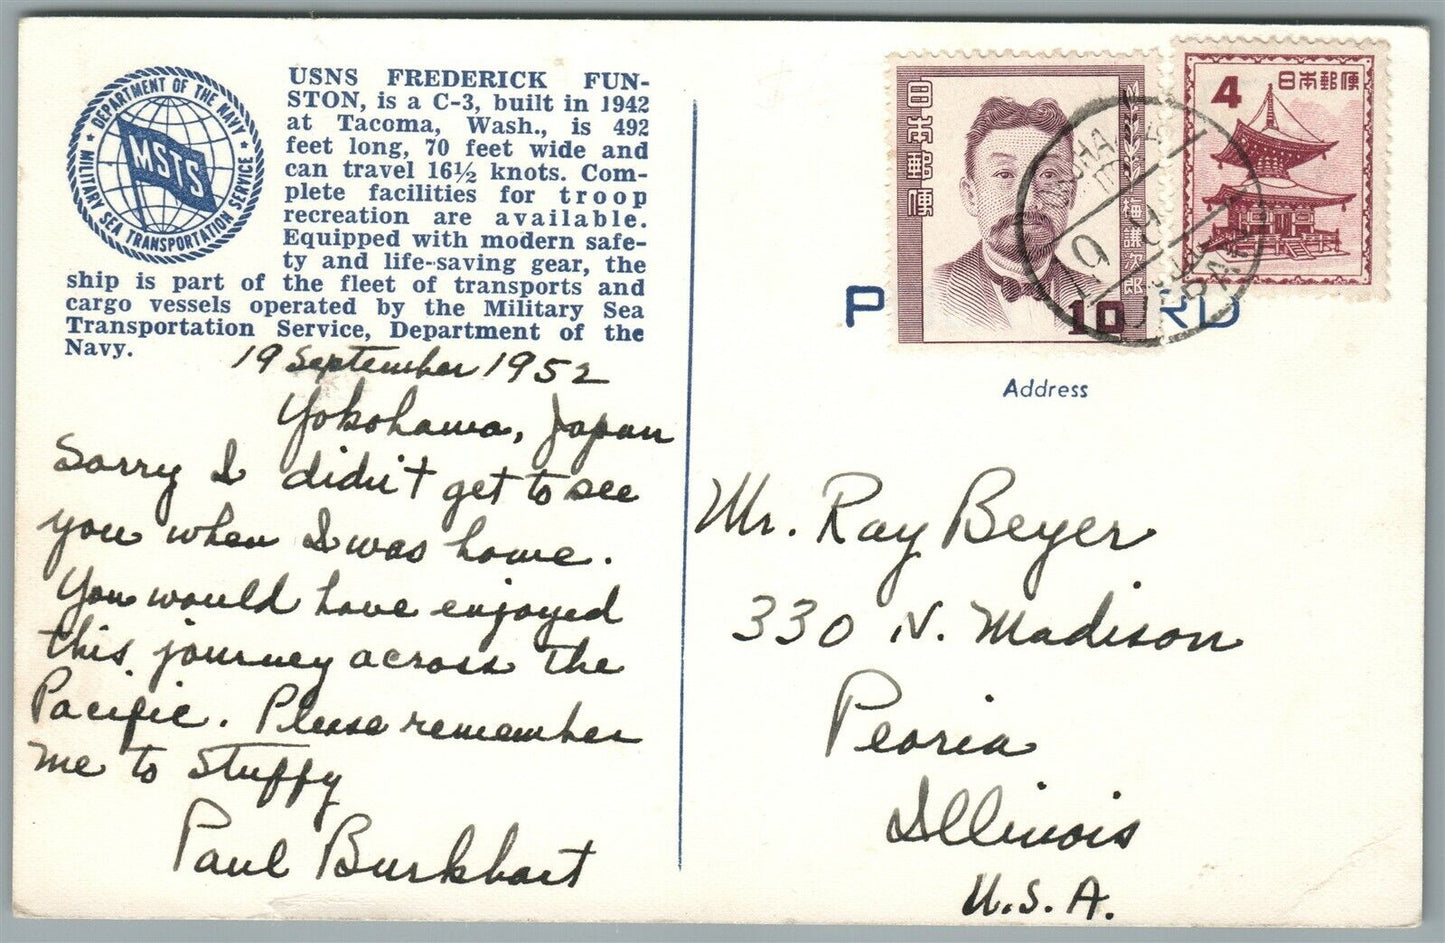 DEPARTMENT OF THE NAVY
MSTS
MILITARY SEA TRANSPORTATION SERVICE
USNS FREDERICK FUN-
STON, is a C-3, built in 1942
at Tacoma, Wash., is 492
feet long, 70 feet wide and
can travel 16½ knots. Com-
plete facilities for troop
recreation are available.
Equipped with modern safe-
ty and life-saving gear, the
ship is part of the fleet of transports and
cargo vessels operated by the Military Sea
Transportation Service, Department of the
Navy.
19 September 1952
Yokohama, Japan
Sorry I didn't get to see
you when I was home.
You would have enjoyed
this journey across the
Pacific. Please remember
me to Stuffy
Paul Burkhart
日本郵便
梅謙次郎
10
4
日本郵便
JAPAN
P RD
Address
Mr. Ray Beyer
330 N. Madison
Peoria
Illinois
U.S.A.